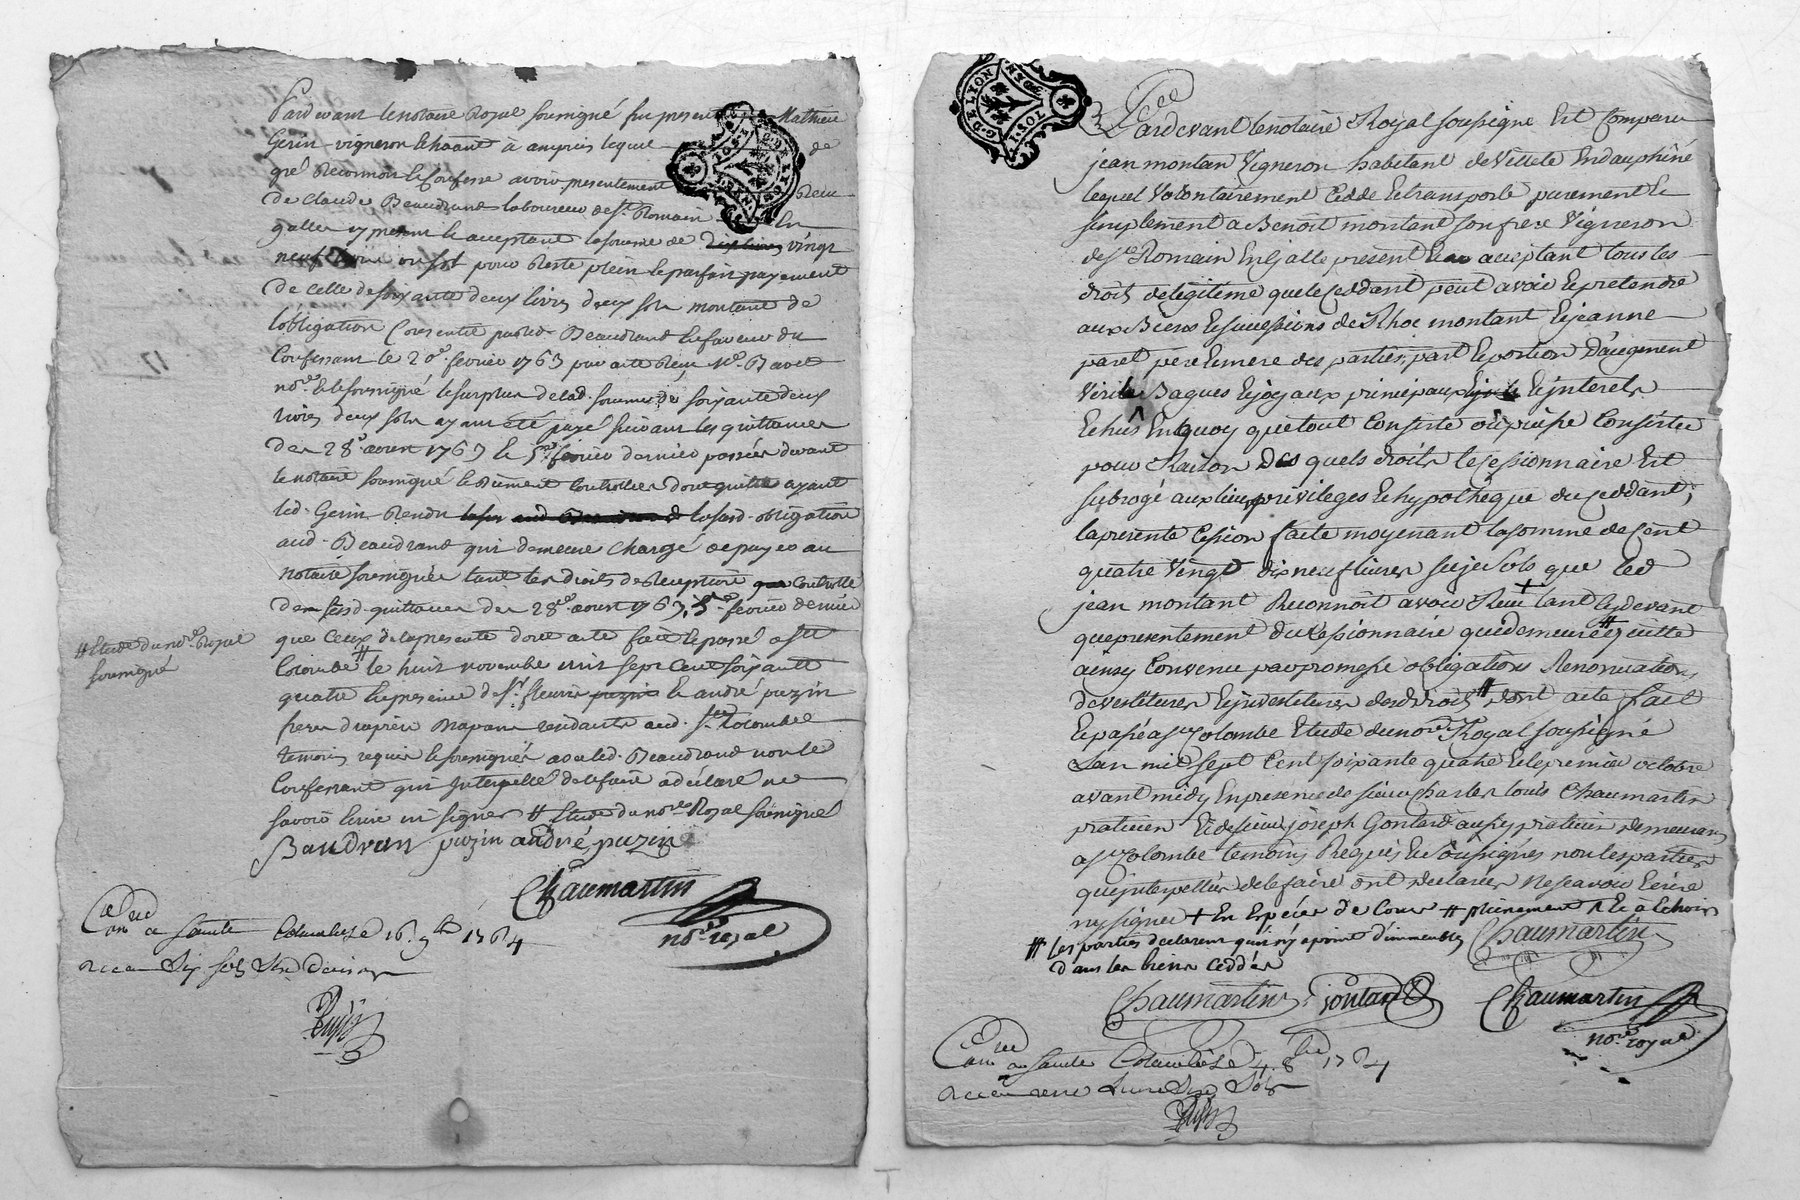 Pardevant le notaire Royal soussigné fut present Mathieu
Gerin vigneron habitant à ampuis lequel de
gré Reconnoit & Confesse avoir presentement Reçu
de Claude Beaudrand laboureur de St. Romain En
galle ici present & acceptant la somme de vingt
neuf un sol pour Reste plein & parfait payement
de celle de soixante deux livres deux sols montant de
l'obligation Consentie par led. Beaudrand En faveur du
Confessant le 20e. fevrier 1763 par acte Reçu Me. Bavet
nore. & le soussigné le surplus de lad. somme de soixante deux
livres deux sols ayant été payé suivant les quittances
des 28e. aoust 1763 & 5e. fevrier dernier passées devant
le notaire soussigné & düement Controllées dont quitte ayant
led. Gerin Rendu lasusd. obligation
aud. Beaudrand qui demeure Chargé de payer au
notaire soussigné tant les droits de Reception Controlle
des susd. quittances des 28e. aoust 1763, 5e. fevrier dernier
que Ceux de la presente dont acte fait & passé a Ste
Colombe # le huit novembre mil sept Cent soixante
quatre En presence de Sr. fleurie puzin & andré puzin
freres drapiers residants aud. Ste. Colombe
temoins requis & soussignés avec led. Beaudrand non le
Confessant qui Interpellé de le faire a déclaré ne
savoir Ecrire ni signer # Etude du nore. Royal soussigné
# Etude du nore. Royal
soussigné
Baudran puzin andré puzin
Chaumartin
nore. royal
Conlé a Sainte Colombe le 16. 9bre 1764
Recu Six sols Six deniers
Pardevant le notaire Royal soussigné Est Comparu
jean montan Vigneron habitant de Villete En dauphiné
lequel Volontairement Cedde & transporte purement &
simplement a Benoit montant son frere Vigneron
de St. Romain En Galle present & acceptant tous les
droits de legitime que le Ceddant peut avoir & pretendre
aux Biens & successions de Rhoc montant & jeanne
paret pere & mere des parties, part & portion D'augment
Virile Bagues & joyaux principaux & interets
Echus En quoy que tout Consiste ou puisse Consister
pour Raison Des quels droits le Cessionnaire Est
subrogé aux lieu, privileges & hypotheque du Ceddant,
la presente Cession faite moyenant la somme de Cent
quatre Vingt dix neuf livres six sols que led
jean montant Reconnoit avoir Reçu + tant cy devant
que presentement du Cessionnaire qui demeure # quitte
ainsy Convenu par promesse obligations Renonciations
devestitures & investitures desd droits # dont acte fait
& passé a Ste Colombe Etude du nore Royal soussigné
Lan mil sept Cent soixante quatre & le premier octobre
avant midy En presence de sieur Charles louis Chaumartin
praticien & de sieur joseph Gontard aussy praticien Demeurans
a Ste Colombe temoins Requis & Soussignés non les parties
qui interpellées de le faire ont declarées Ne scavoir Ecrire
ny signer + En Espéces de Cours # pleinement ^ & a Echoir
# les parties declarent qu'il ny a point d'immeubles
dans les biens ceddés
Chaumartin
Chaumartin gontard Chaumartin
nore. royal
Conlé a Sainte Colombe le 4. 8bre 1764
Recu une Livre Six Sols